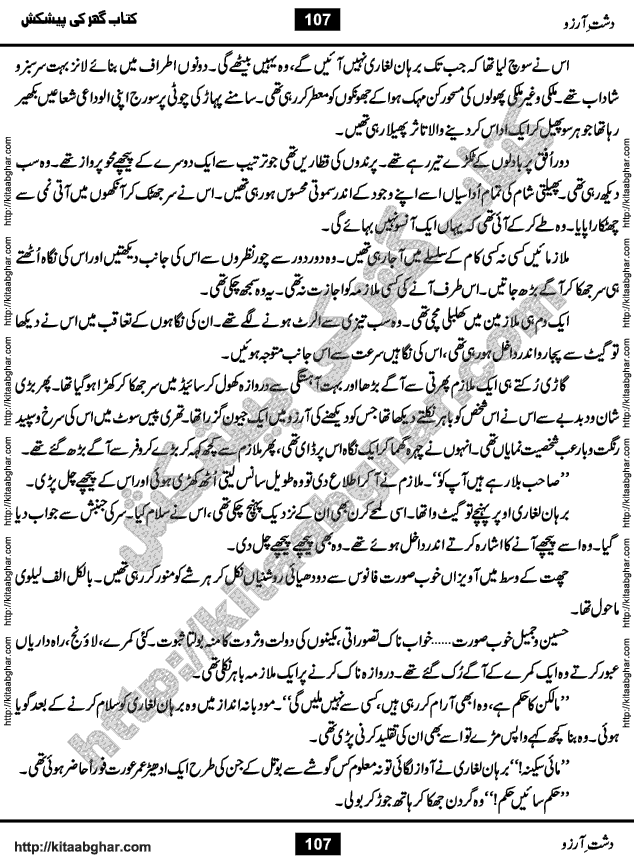 کتاب گھر کی پیشکش 107 دشتِ آرزو
اس نے سوچ لیا تھا کہ جب تک برہان لغاری نہیں آئیں گے، وہ یہیں بیٹھے گی۔ دونوں اطراف میں بنائے لانز بہت سرسبز و
شاداب تھے۔ ملکی وغیر ملکی پھولوں کی مسحور کن مہک ہوا کے جھونکوں کو معطر کر رہی تھی۔ سامنے پہاڑ کی چوٹی پر سورج اپنی الوداعی شعاعیں بکھیر
رہا تھا جو ہر سو پھیل کر ایک اداس کر دینے والا تاثر پھیلا رہی تھیں۔
دور اُفق پر بادلوں کے ٹکڑے تیر رہے تھے۔ پرندوں کی قطاریں تھی جو ترتیب سے ایک دوسرے کے پیچھے محوِ پرواز تھے۔ وہ سب
دیکھ رہی تھی۔ پھیلتی شام کی تمام اُداسیاں اسے اپنے وجود کے اندر سموتی محسوس ہو رہی تھیں۔ اس نے سر جھٹک کر آنکھوں میں آتی نمی سے
چھٹکارا پایا۔ وہ طے کر کے آئی تھی کہ یہاں ایک آنسو نہیں بہائے گی۔
ملازمائیں کسی نہ کسی کام کے سلسلے میں آ جا رہی تھیں۔ وہ دور دور سے چور نظروں سے اس کی جانب دیکھتیں اور اس کی نگاہ اُٹھتے
ہی سر جھکا کر آگے بڑھ جاتیں۔ اس طرف آنے کی کسی ملازمہ کو اجازت نہ تھی۔ یہ وہ سمجھ چکی تھی۔
ایک دم ہی ملازمین میں کھلبلی مچی تھی۔ وہ سب تیزی سے الرٹ ہونے لگے تھے۔ ان کی نگاہوں کے تعاقب میں اس نے دیکھا
تو گیٹ سے پجارو اندر داخل ہو رہی تھی، اس کی نگاہیں سرعت سے اس جانب متوجہ ہوئیں۔
گاڑی رُکتے ہی ایک ملازم پھرتی سے آگے بڑھا اور بہت آہستگی سے دروازہ کھول کر سائیڈ میں سر جھکا کر کھڑا ہو گیا تھا۔ پھر بڑی
شان و دبدبے سے اس نے اس شخص کو باہر نکلتے دیکھا تھا جس کو دیکھنے کی آرزو میں ایک جیون گزرا تھا۔ تھری پیس سوٹ میں اس کی سرخ و سپید
رنگت و بارعب شخصیت نمایاں تھی۔ انہوں نے چہرہ گھما کر ایک نگاہ اس پر ڈالی تھی، پھر ملازم سے کچھ کہہ کر بڑے کروفر سے آگے بڑھ گئے تھے۔
’’صاحب بلا رہے ہیں آپ کو‘‘۔ ملازم نے آ کر اطلاع دی تو وہ طویل سانس لیتی اُٹھ کھڑی ہوئی اور اس کے پیچھے چل پڑی۔
برہان لغاری اوپر پہنچے تو گیٹ وا تھا۔ اسی لمحے کرن بھی ان کے نزدیک پہنچ چکی تھی، اس نے سلام کیا۔ سر کی جنبش سے جواب دیا
گیا۔ وہ اسے پیچھے آنے کا اشارہ کرتے اندر داخل ہوئے تھے۔ وہ بھی پیچھے پیچھے چل دی۔
چھت کے وسط میں آویزاں خوب صورت فانوس سے دودھیائی روشنیاں نکل کر ہر شے کو منور کر رہی تھیں۔ بالکل الف لیلوی
ماحول تھا۔
حسین و جمیل خوب صورت...... خواب ناک تصوراتی، مکینوں کی دولت و ثروت کا منہ بولتا ثبوت۔ کئی کمرے، لاؤنج، راہ داریاں
عبور کرتے وہ ایک کمرے کے آگے رُک گئے تھے۔ دروازہ ناک کرنے پر ایک ملازمہ باہر نکلی تھی۔
’’مالکن کا حکم ہے، وہ ابھی آرام کر رہی ہیں، کسی سے نہیں ملیں گی‘‘۔ مودبانہ انداز میں وہ برہان لغاری کو سلام کرنے کے بعد گویا
ہوئی۔ وہ بنا کچھ کہے واپس مڑے تو اسے بھی ان کی تقلید کرنی پڑی تھی۔
’’مائی سکینہ!‘‘ برہان لغاری نے آواز لگائی تو نہ معلوم کس گوشے سے بوتل کے جن کی طرح ایک ادھیڑ عمر عورت فوراً حاضر ہوئی تھی۔
’’حکم سائیں حکم!‘‘ وہ گردن جھکا کر ہاتھ جوڑ کر بولی۔
http://kitaabghar.com 107 دشتِ آرزو
http://kitaabghar.com
http://kitaabghar.com
http://kitaabghar.com
http://kitaabghar.com
http://kitaabghar.com
http://kitaabghar.com
http://kitaabghar.com
http://kitaabghar.com
http://kitaabghar.com
http://kitaabghar.com
http://kitaabghar.com
http://kitaabghar.com
کتاب گھر کی پیشکش
http://kitaabghar.com